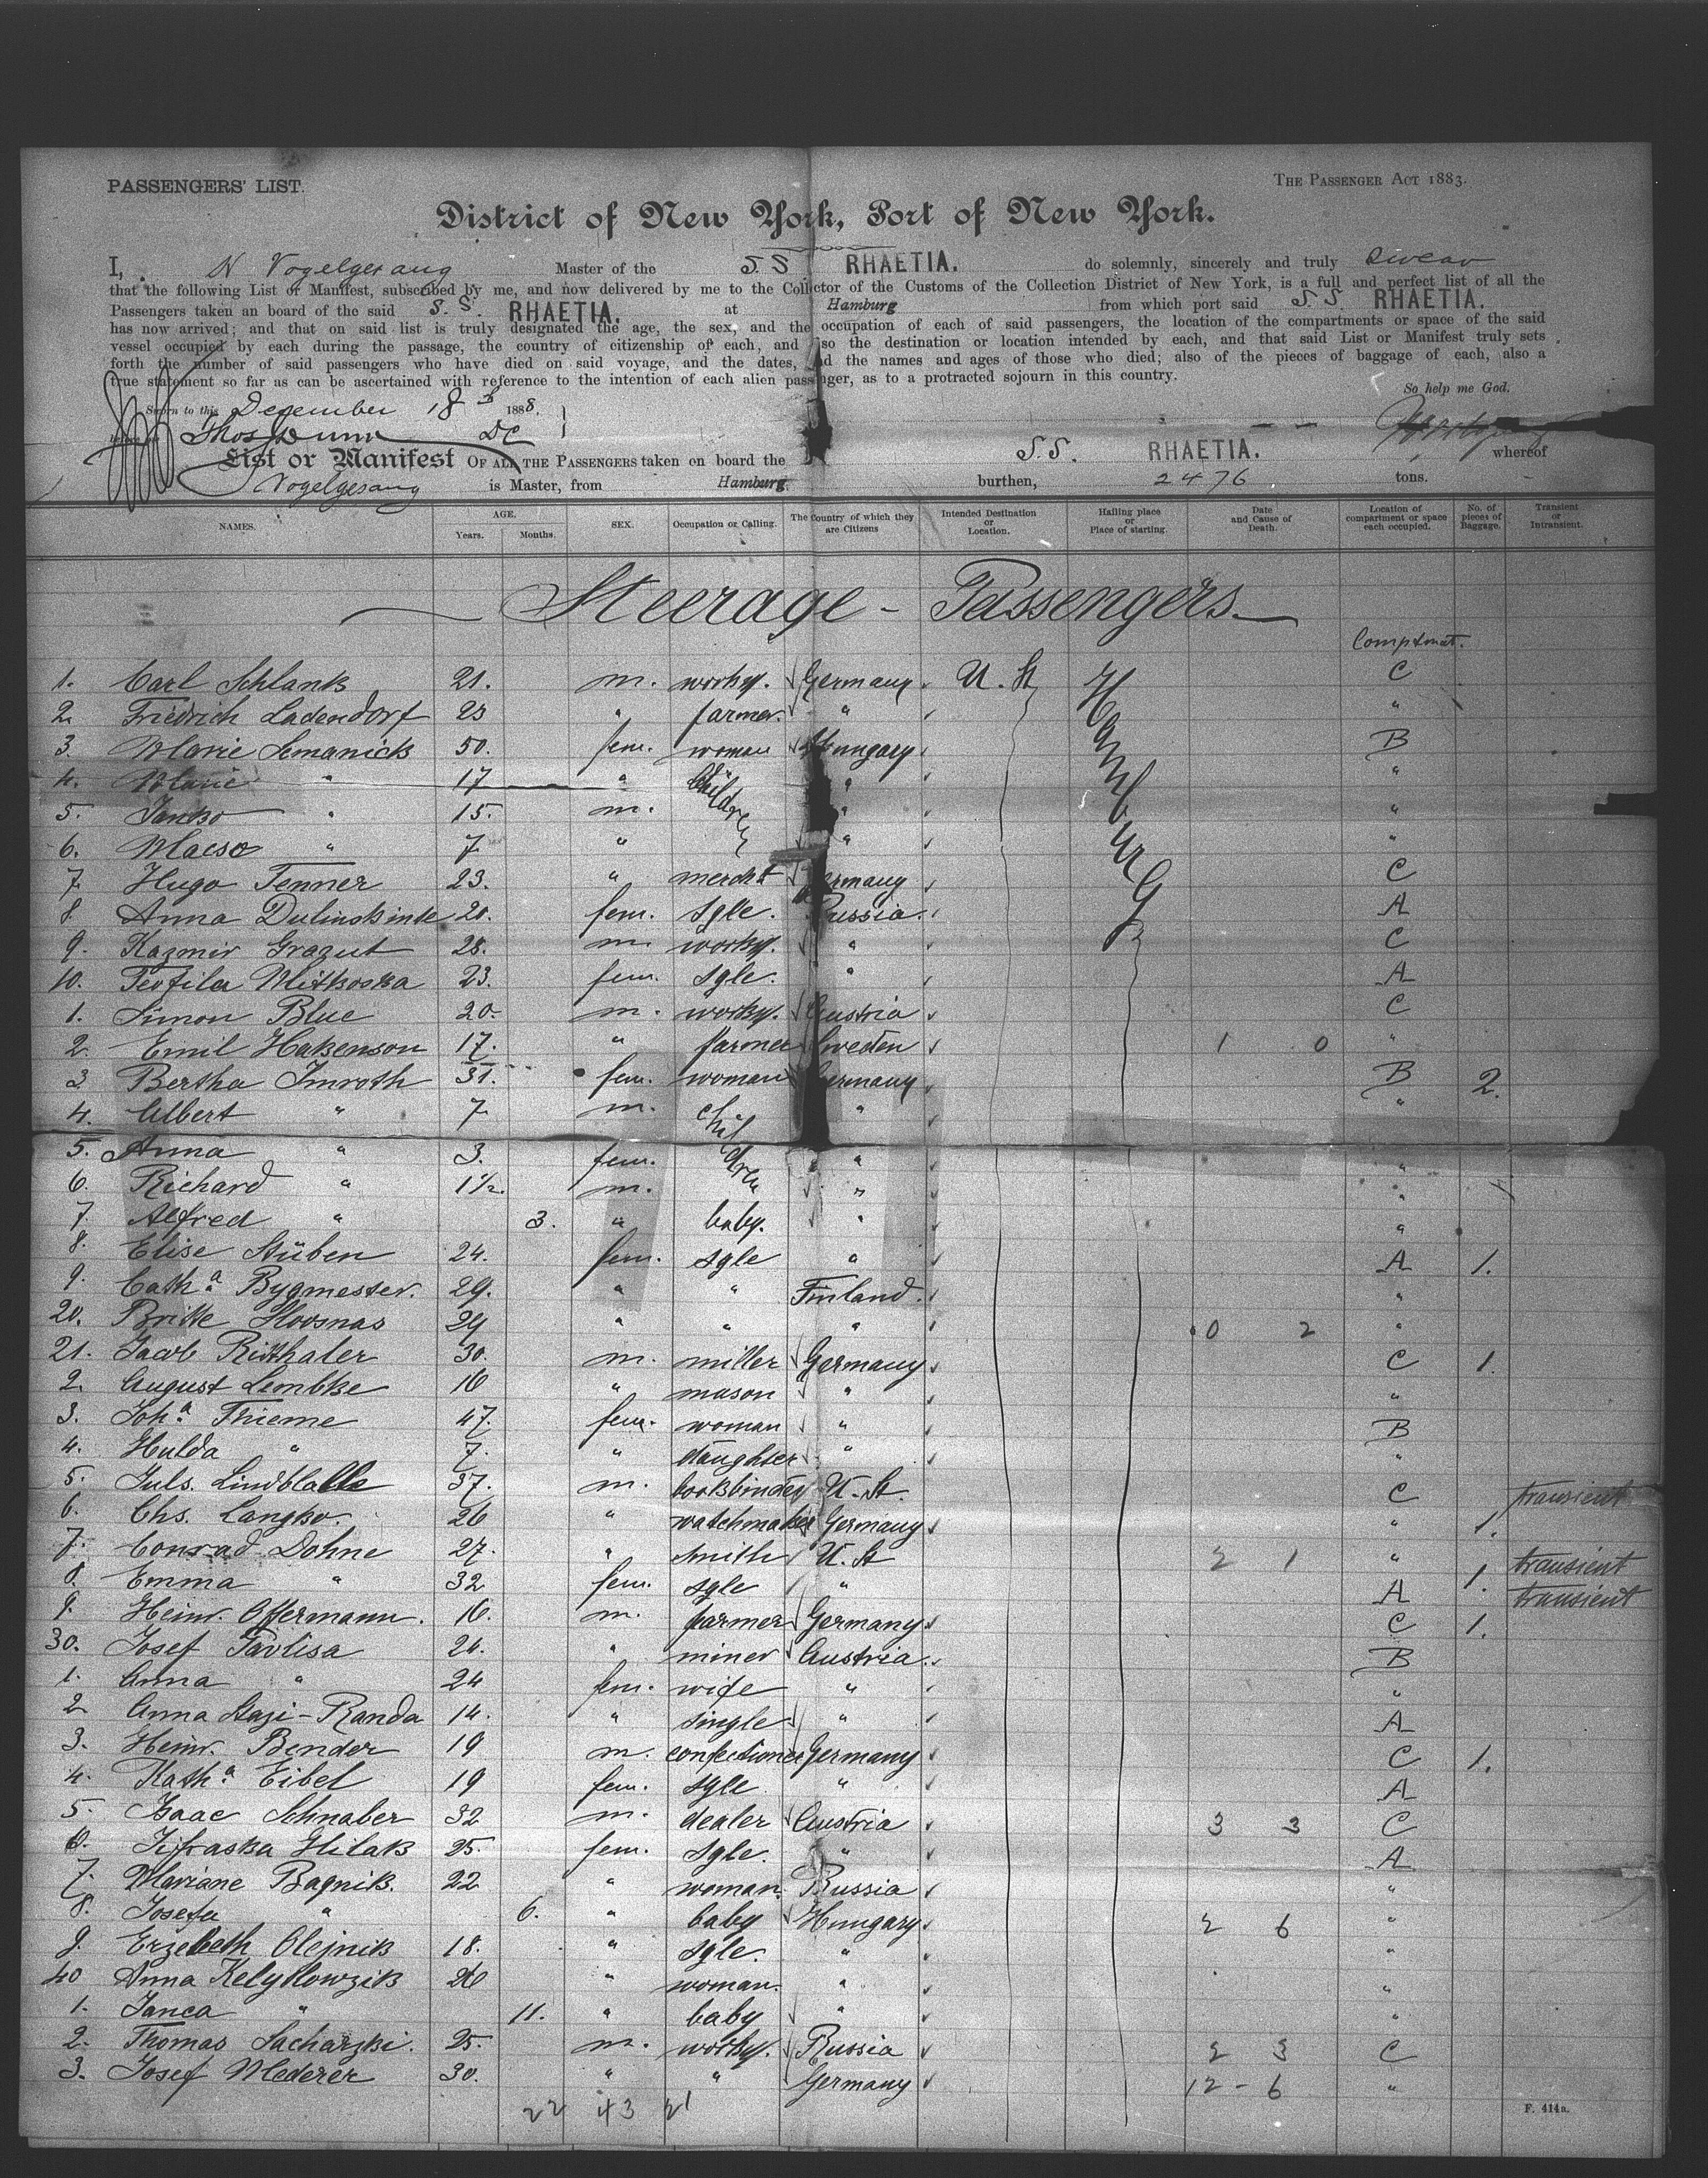 PASSENGERS' LIST.
THE PASSENGER ACT 1883.
District of New York, Port of New York.
I, N Vogelgesang Master of the S.S. RHAETIA. do solemnly, sincerely and truly swear
that the following List or Manifest, subscribed by me, and now delivered by me to the Collector of the Customs of the Collection District of New York, is a full and perfect list of all the
Passengers taken on board of the said S.S. RHAETIA. at Hamburg from which port said S.S. RHAETIA.
has now arrived; and that on said list is truly designated the age, the sex, and the occupation of each of said passengers, the location of the compartments or space of the said
vessel occupied by each during the passage, the country of citizenship of each, and also the destination or location intended by each, and that said List or Manifest truly sets
forth the number of said passengers who have died on said voyage, and the dates, and the names and ages of those who died; also of the pieces of baggage of each, also a
true statement so far as can be ascertained with reference to the intention of each alien passenger, as to a protracted sojourn in this country.
So help me God.
Sworn to this December 18th 1888.
Thos Dunn DC
List or Manifest OF ALL THE PASSENGERS taken on board the S.S. RHAETIA. whereof
Vogelgesang is Master, from Hamburg burthen, 2476 tons.
NAMES. AGE. Years. Months. SEX. Occupation or Calling. The Country of which they are Citizens Intended Destination or Location. Hailing place or Place of starting. Date and Cause of Death. Location of compartment or space each occupied. No. of pieces of Baggage. Transient or Intransient.
Steerage - Passengers
Comptmat.
1. Carl Schlank 21. m. worky. Germany U. St Hamburg C
2. Friedrich Ladendorf 23 " farmer. " "
3. Marie Semanick 50. fem. woman Hungary B
4. Marie " 17 " Children " "
5. Janko " 15. m. " "
6. Maeso " 7 " " "
7. Hugo Tenner 23. " mercht Germany C
8. Anna Dulinskinte 20. fem. sgle. Russia A
9. Kazmir Grazut 28. m. worky. " C
10. Teofila Mitkoska 23. fem. sgle. " A
1. Simon Blue 20. m. worky. Austria C
2. Emil Hakenson 17. " farmer Sweden 1 0 "
3. Bertha Imroth 31. fem. woman Germany B 2.
4. Albert " 7 m. children " "
5. Anna " 3. fem. " "
6. Richard " 1½. m. " "
7. Alfred " 3. " baby. " "
8. Elise Stüben 24. fem. sgle " A 1.
9. Catha. Bygmester. 29. " " Finland. "
20. Britte Hoosnas 29 " " " 0 2 "
21. Jacob Ritthaler 30. m. miller Germany C 1.
2. August Lembke 16 " mason " "
3. Joha. Thieme 47. fem. woman " B
4. Hulda " 7. " daughter " "
5. Juls. Lindblalle 37. m. bookbinder U. St. C transient
6. Chs. Langko. 26 " watchmaker Germany " 1.
7. Conrad Dohne 27. " smith U. St 2 1 " 1. transient
8. Emma " 32 fem. sgle " A transient
9. Heinr. Offermann. 16. m. farmer Germany C 1.
30. Josef Pavlisa 24. " miner Austria B
1. Anna " 24 fem. wife " "
2 Anna Hazi-Randa 14. " single " A
3. Heinr. Bender 19 m. confectioner Germany C 1.
4. Katha. Eibel 19 fem. sgle " A
5. Isaac Schnaber 32 m. dealer Austria 3 3 C
6. Jifraska Hilak 25. fem. sgle. " A
7. Mariane Bagnik. 22 " woman. Russia "
8. Josefa " 6. " baby Hungary 2 6 "
9. Erzebeth Olejnik 18. " sgle. " "
40 Anna Kelyllowzik 26 " woman. " "
1. Janca " 11. " baby " "
2. Thomas Sacharzki. 25. m. worky. Russia 2 3 C
3. Josef Mederer 30. " " Germany 12 - 6 "
22 43 21
F. 414a.